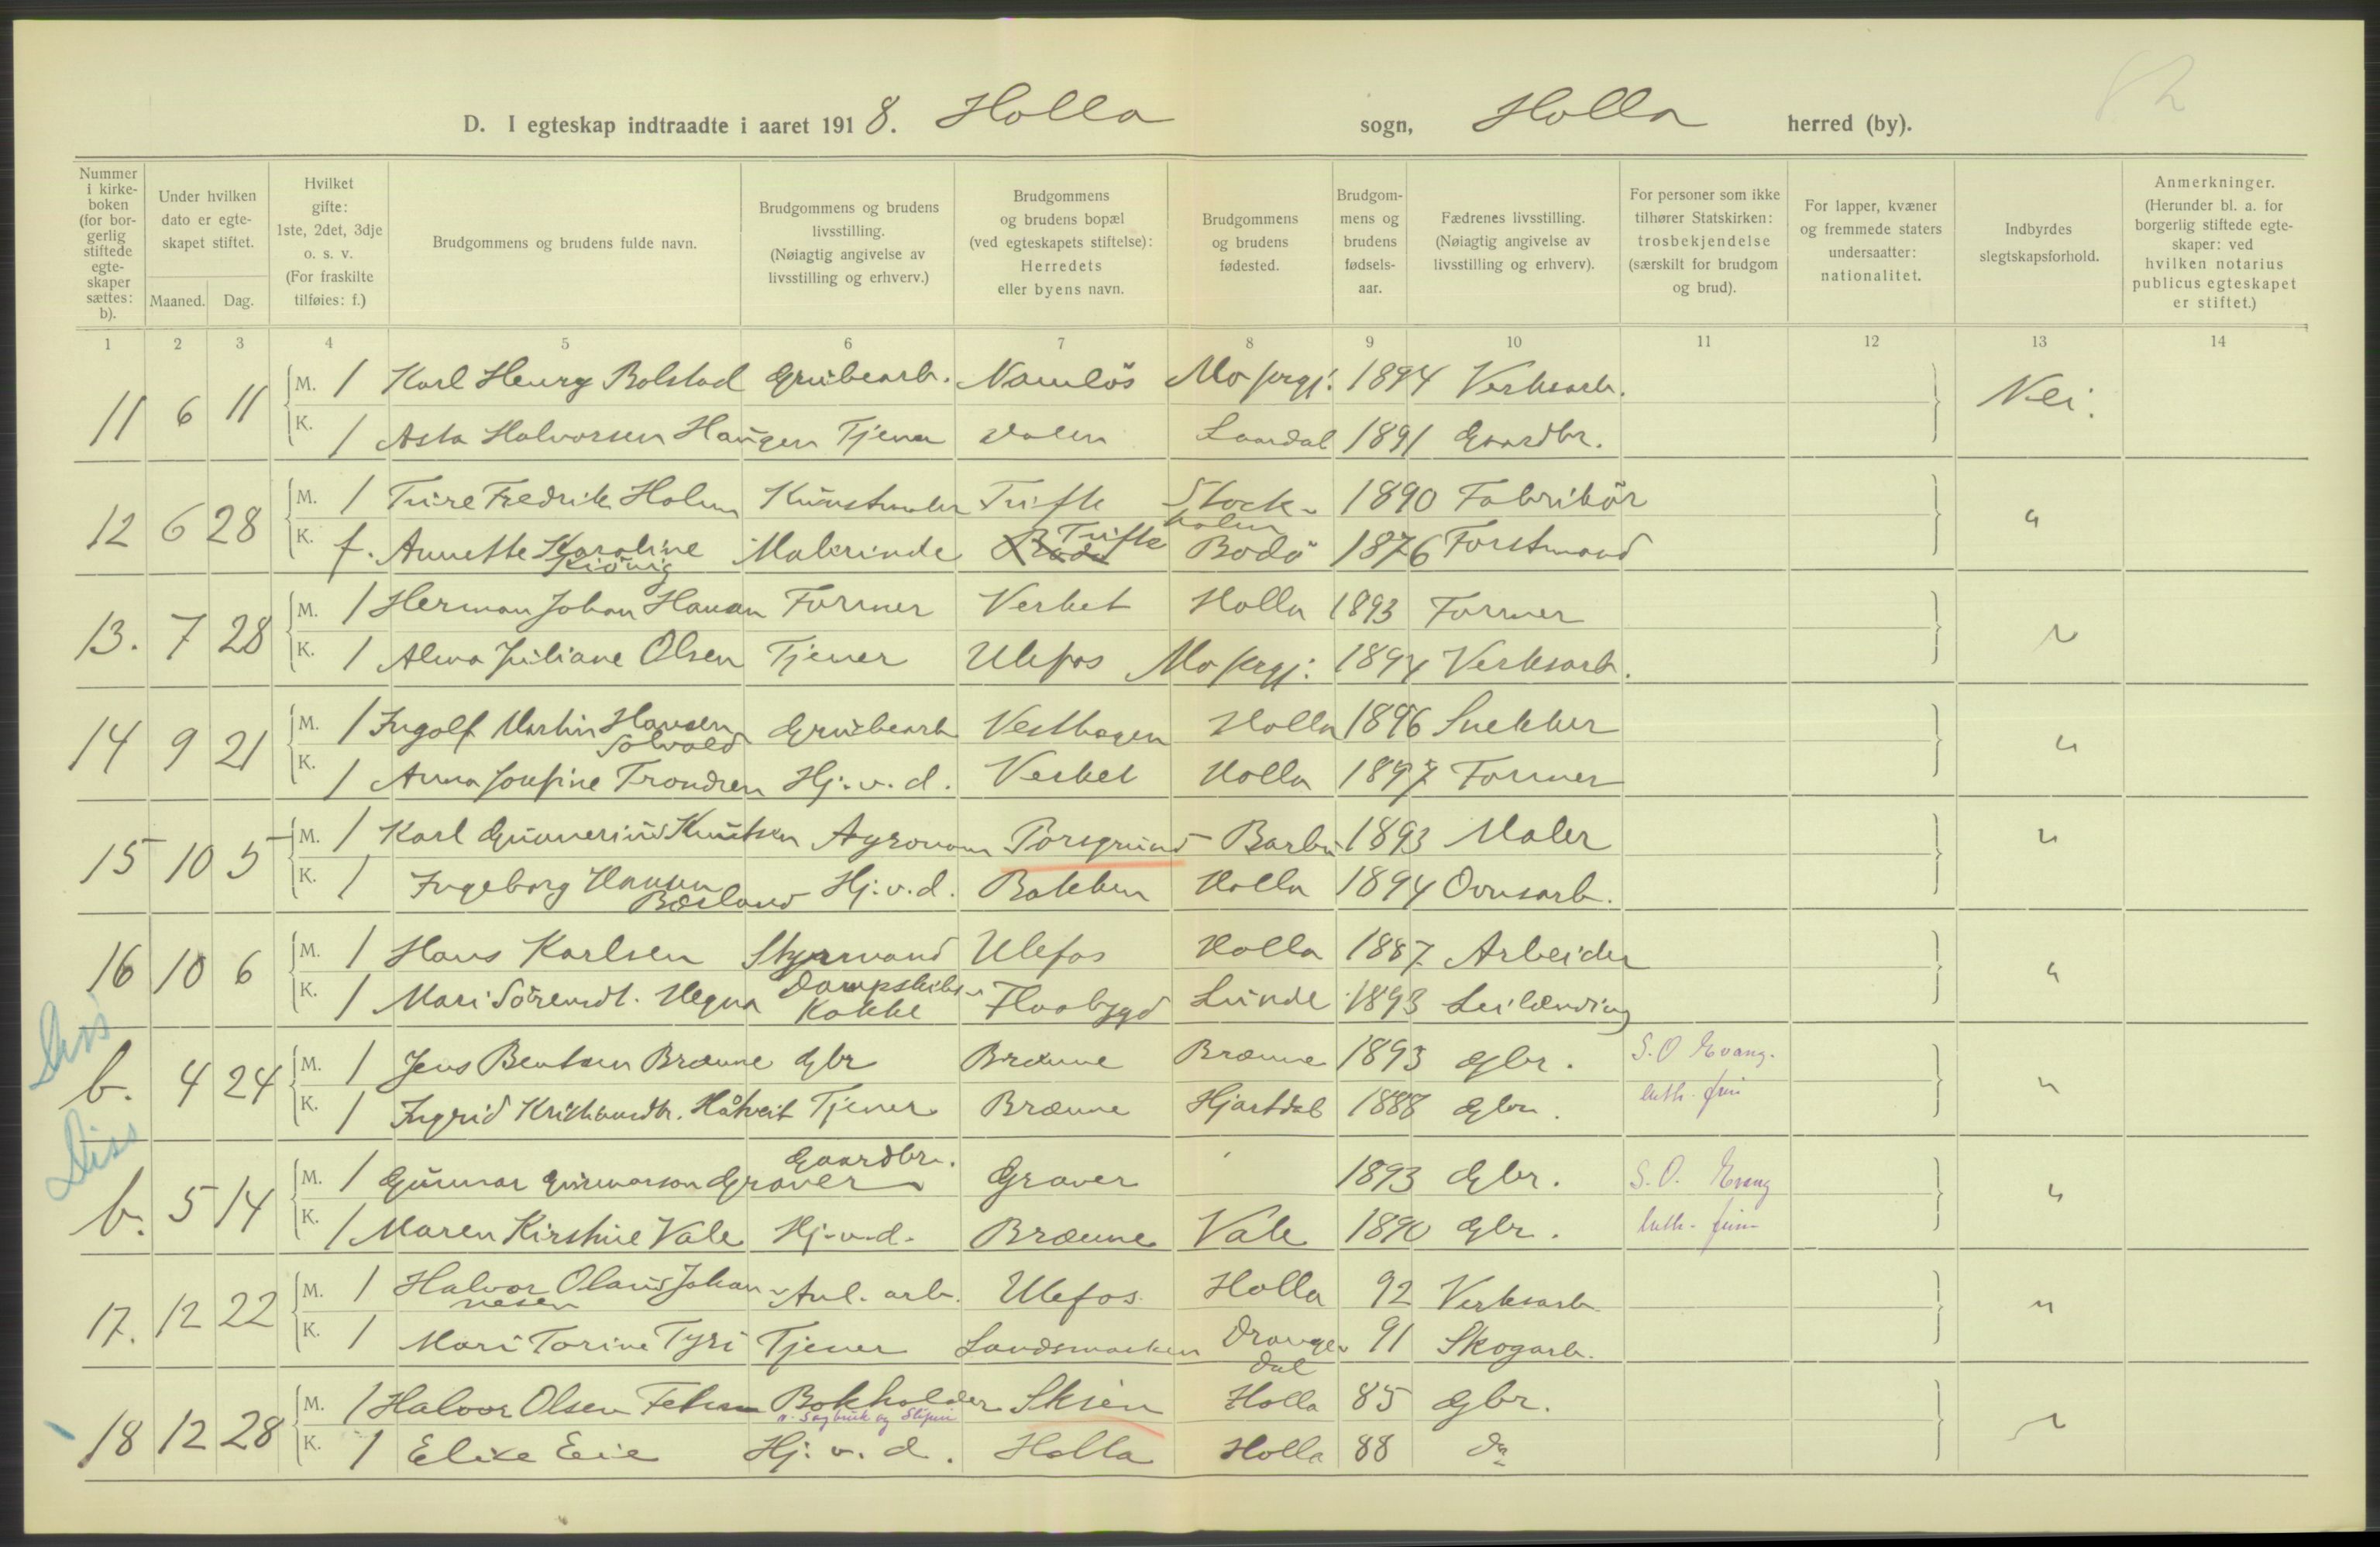 D. I egteskap indtraadte i aaret 1918. Holla sogn, Holla herred (by).
Nummer i kirke-boken (for bor-gerlig stiftede egte-skaper sættes: b).
Under hvilken dato er egte-skapet stiftet.
Maaned. Dag.
Hvilket gifte: 1ste, 2det, 3dje o. s. v. (For fraskilte tilføies: f.)
Brudgommens og brudens fulde navn.
Brudgommens og brudens livsstilling. (Nøiagtig angivelse av livsstilling og erhverv.)
Brudgommens og brudens bopæl (ved egteskapets stiftelse): Herredets eller byens navn.
Brudgommens og brudens fødested.
Brudgom-mens og brudens fødsels-aar.
Fædrenes livsstilling. (Nøiagtig angivelse av livsstilling og erhverv).
For personer som ikke tilhører Statskirken: trosbekjendelse (særskilt for brudgom og brud).
For lapper, kvæner og fremmede staters undersaatter: nationalitet.
Indbyrdes slegtskapsforhold.
Anmerkninger. (Herunder bl. a. for borgerlig stiftede egte-skaper: ved hvilken notarius publicus egteskapet er stiftet.)
1 2 3 4 5 6 7 8 9 10 11 12 13 14
11 6 11 M. 1 Karl Henry Bolstad Grubearb. Namløs Mo prgj. 1894 Verksarb. Nei.
K. 1 Asta Halvorsen Haugen Tjener Valen Laardal 1891 Gaardbr.
12 6 28 M. 1 Ture Fredrik Holm Kunstmaler Trifte Stock-holm 1890 Fabrikör "
K. f. Annette Karoline Kiönig Malerinde Trifte Bodö 1876 Forstmand
13. 7 28 M. 1 Herman Johan Hansen Former Verket Holla 1893 Former "
K. 1 Alma Juliane Olsen Tjener Ulefos Mo prgj: 1894 Verksarb.
14 9 21 M. 1 Ingolf Martin Hansen Solvold Grubearb Vesthagen Holla 1896 Snekker "
K. 1 Anna Josefine Trondsen Hj. v. d. Verket Holla 1897 Former
15 10 5 M. 1 Karl Gunnerius Knutsen Agronom Porsgrund Barbu 1893 Maler "
K. 1 Ingeborg Hansen Bæsland Hj. v. d. Bakken Holla 1894 Ovnsarb.
16 10 6 M. 1 Hans Karlsen Styrmand Ulefos Holla 1887 Arbeider "
K. 1 Mari Sörensdt. Hegna Dampskibs-Kokke Flaabygd Lunde 1893 Leilænding
Diss
b. 4 24 M. 1 Jens Bentsen Brænne Gbr Brænne Brænne 1893 Gbr. S. O Evang. "
K. 1 Ingrid Kristiansdtr. Håtveit Tjener Brænne Hjartdal 1888 Gbr. luth. frim
Diss
b. 5 14 M. 1 Gunnar Gunnarson Graver Gaardbr. Graver 1893 Gbr. S. O. Evang "
K. 1 Maren Kirstine Vale Hj. v. d. Brænne Vale 1890 Gbr. luth. frim
17. 12 22 M. 1 Halvor Olaus Johan-nesen Anl. arb. Ulefos Holla 92 Verksarb. "
K. 1 Mari Torine Tyri Tjener Landsmarken Drange-dal 91 Skogarb.
18 12 28 M. 1 Halvor Olsen Fehn Bokholder v. Sagbruk og Sliperi Skien Holla 85 Gbr. "
K. 1 Elise Eie Hj. v. d. Holla Holla 88 do